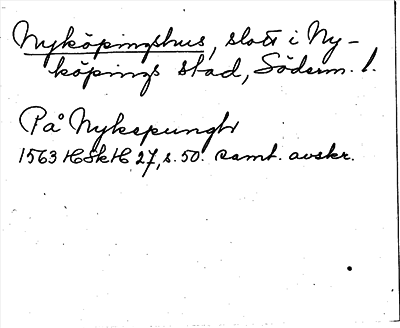 Nyköpingshus, slott i Ny-
köpings stad, Söderm. l.
På Nykepungh
1563 HSkH 27, s. 50. samt. avskr.